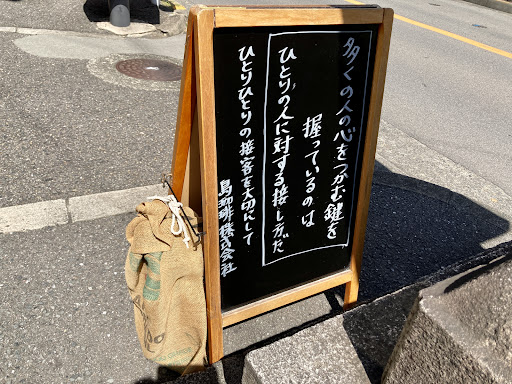 多くの人の心をつかむ鍵を
握っているのは
ひとりの人に対する接し方だ
ひとりひとりの接客を大切にして
島珈琲株式会社